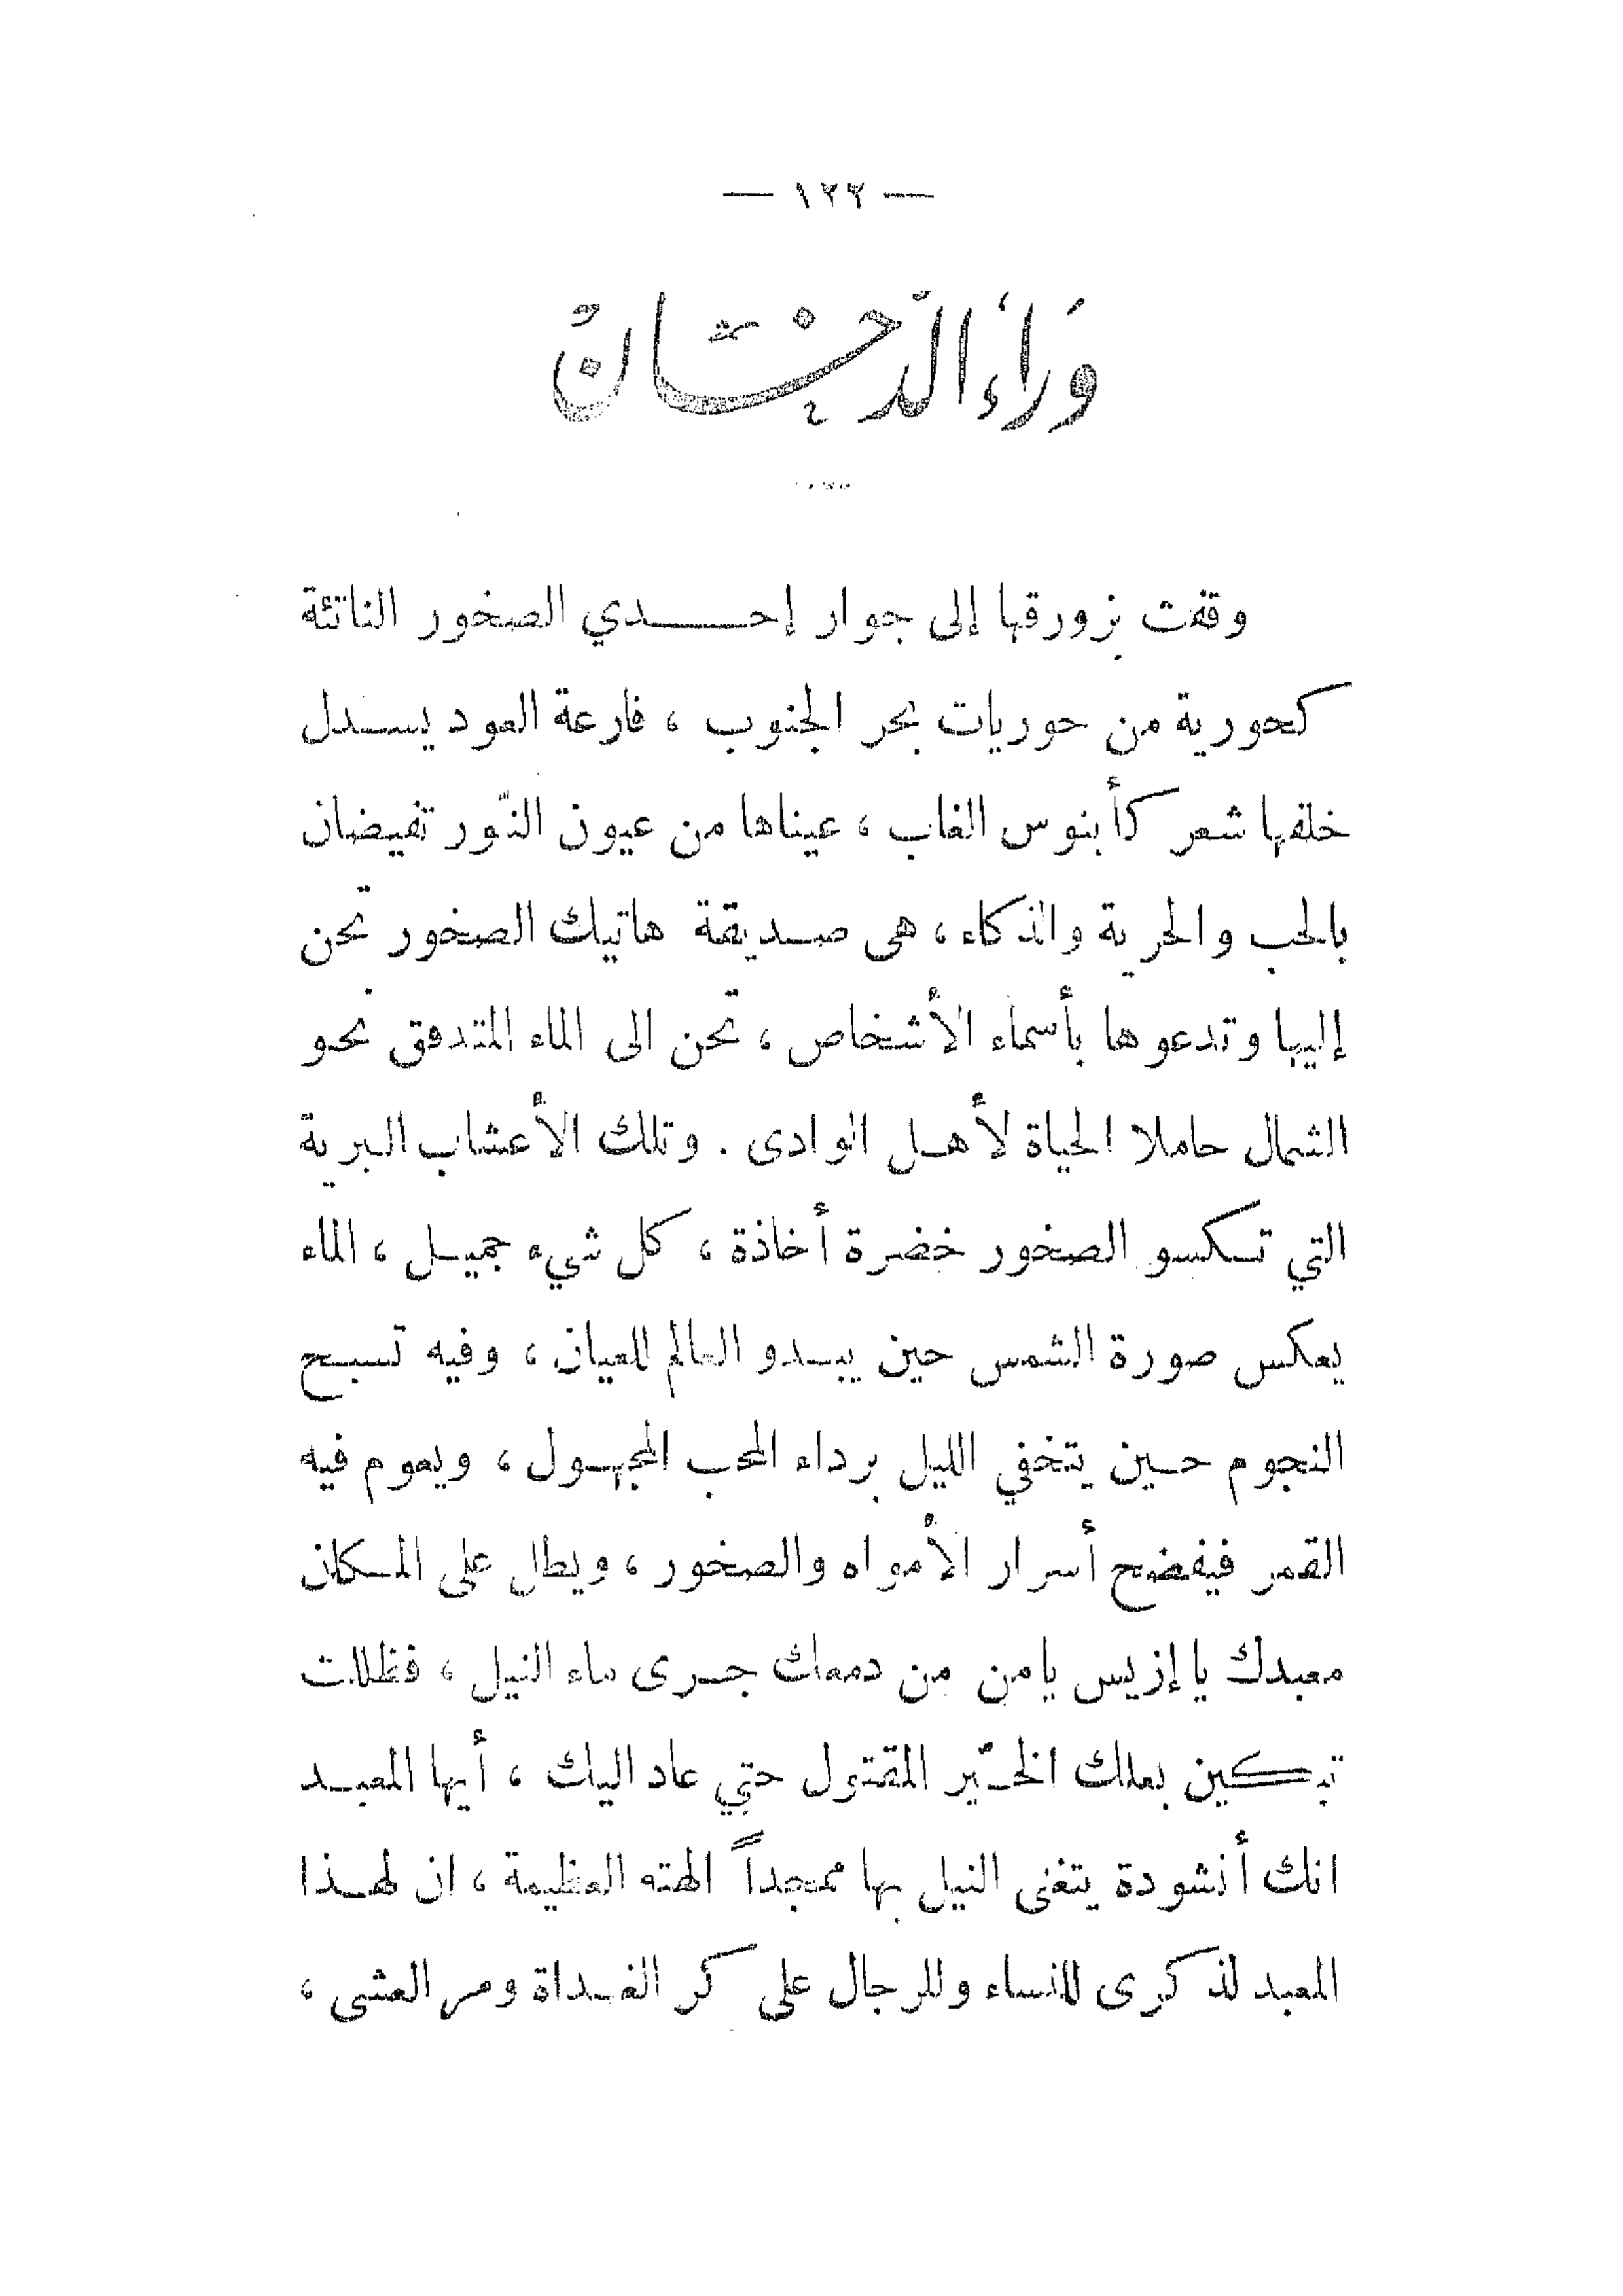 — ١٢٢ —
وَرَاءَ الدّخَانُ
وقفت بزورقها إلى جوار إحدي الصخور الناتئة
كحورية من حوريات بحر الجنوب ، فارعة العود يسدل
خلفها شعر كأبنوس الغاب ، عيناها من عيون النّور تفيضان
بالحب والحرية والذكاء ، هى صديقة هاتيك الصخور تحن
إليها وتدعوها بأسماء الأشخاص ، تحن الى الماء المتدفق نحو
الشمال حاملا الحياة لأهل الوادى . وتلك الأعشاب البرية
التي تكسو الصخور خضرة أخاذة ، كل شيء جميل ، الماء
يعكس صورة الشمس حين يبدو العالم للعيان ، وفيه تسبح
النجوم حين يتخفي الليل برداء المحب المجهول ، ويعوم فيه
القمر فيفضح أسرار الأمواه والصخور ، ويطل على المكان
معبدك يا إزيس يامن من دمعك جرى ماء النيل ، فظللت
تبكين بعلك الخيّر المقتول حتي عاد اليك ، أيها المعبد
انك أنشودة يتغنى النيل بها ممجداً الهته العظيمة ، ان لهذا
المعبد لذكرى للنساء وللرجال على كر الغداة ومر العشى ،